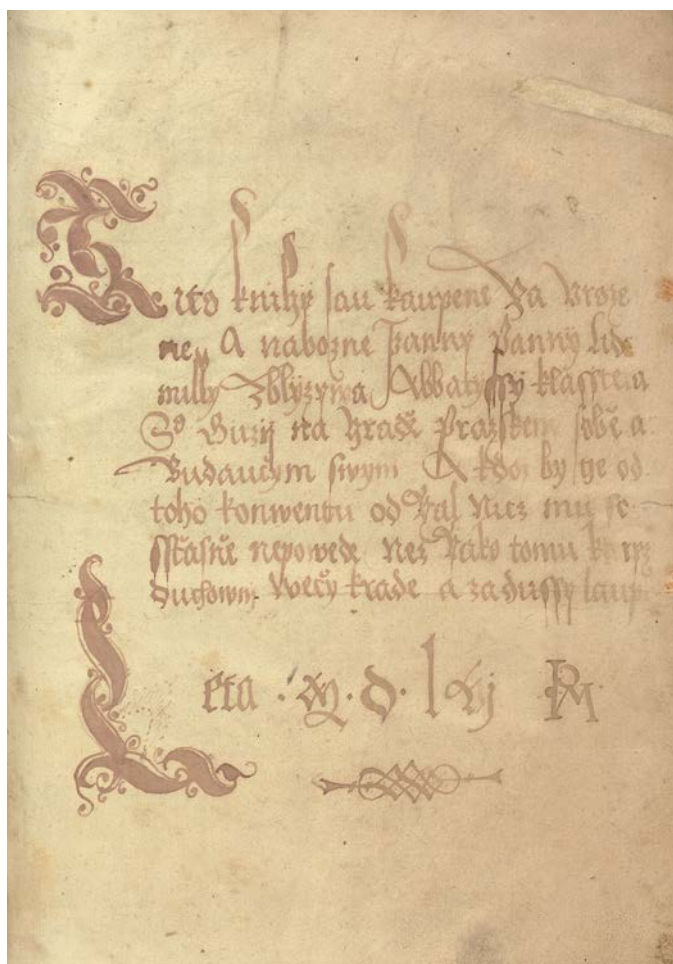 Tito knihy sau kaupene Za Uroze
ne A nabozne Panny Panny Lid
milly Zblyzywa Abbatyssy klasstera
So Girzij na hradě Prazskem sobě a
Budaucym siwym A kdoz by ge od
toho konwentu od Zal Nicz mu se
sstiasně nepowede než Yako tomu kteryz
duchowny wecy krade a zadussy laup
Leta · M · D · lvj PM